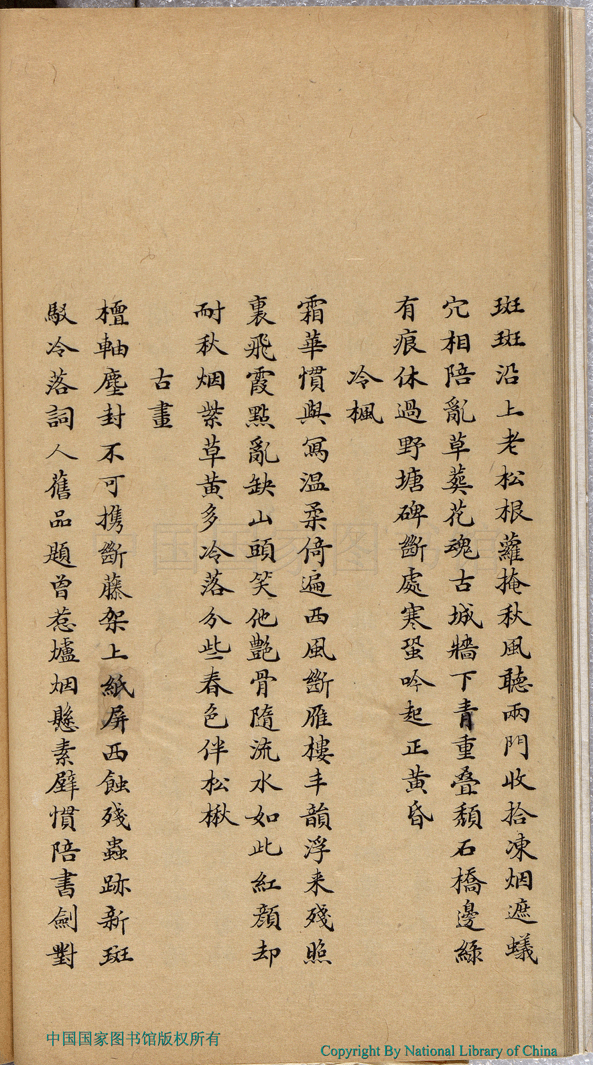 斑斑沿上老松根蘿掩秋風聽兩門收拾凍烟遮蟻
穴相陪亂草葬花魂古城牆下青重叠頹石橋邊綠
有痕休過野塘碑斷處寒蛩吟起正黃昏
冷楓
霜華慣與寫温柔倚遍西風斷雁樓丰韻浮来殘照
裏飛霞點亂缺山頭笑他艷骨隨流水如此紅顏却
耐秋烟紫草黃多冷落分些春色伴松楸
古畫
檀軸塵封不可携斷藤架上紙屏西蝕殘蟲跡新斑
駁冷落詞人舊品題曾惹爐烟懸素壁慣陪書劍對
中国国家图书馆
中国国家图书馆版权所有
Copyright By National Library of China